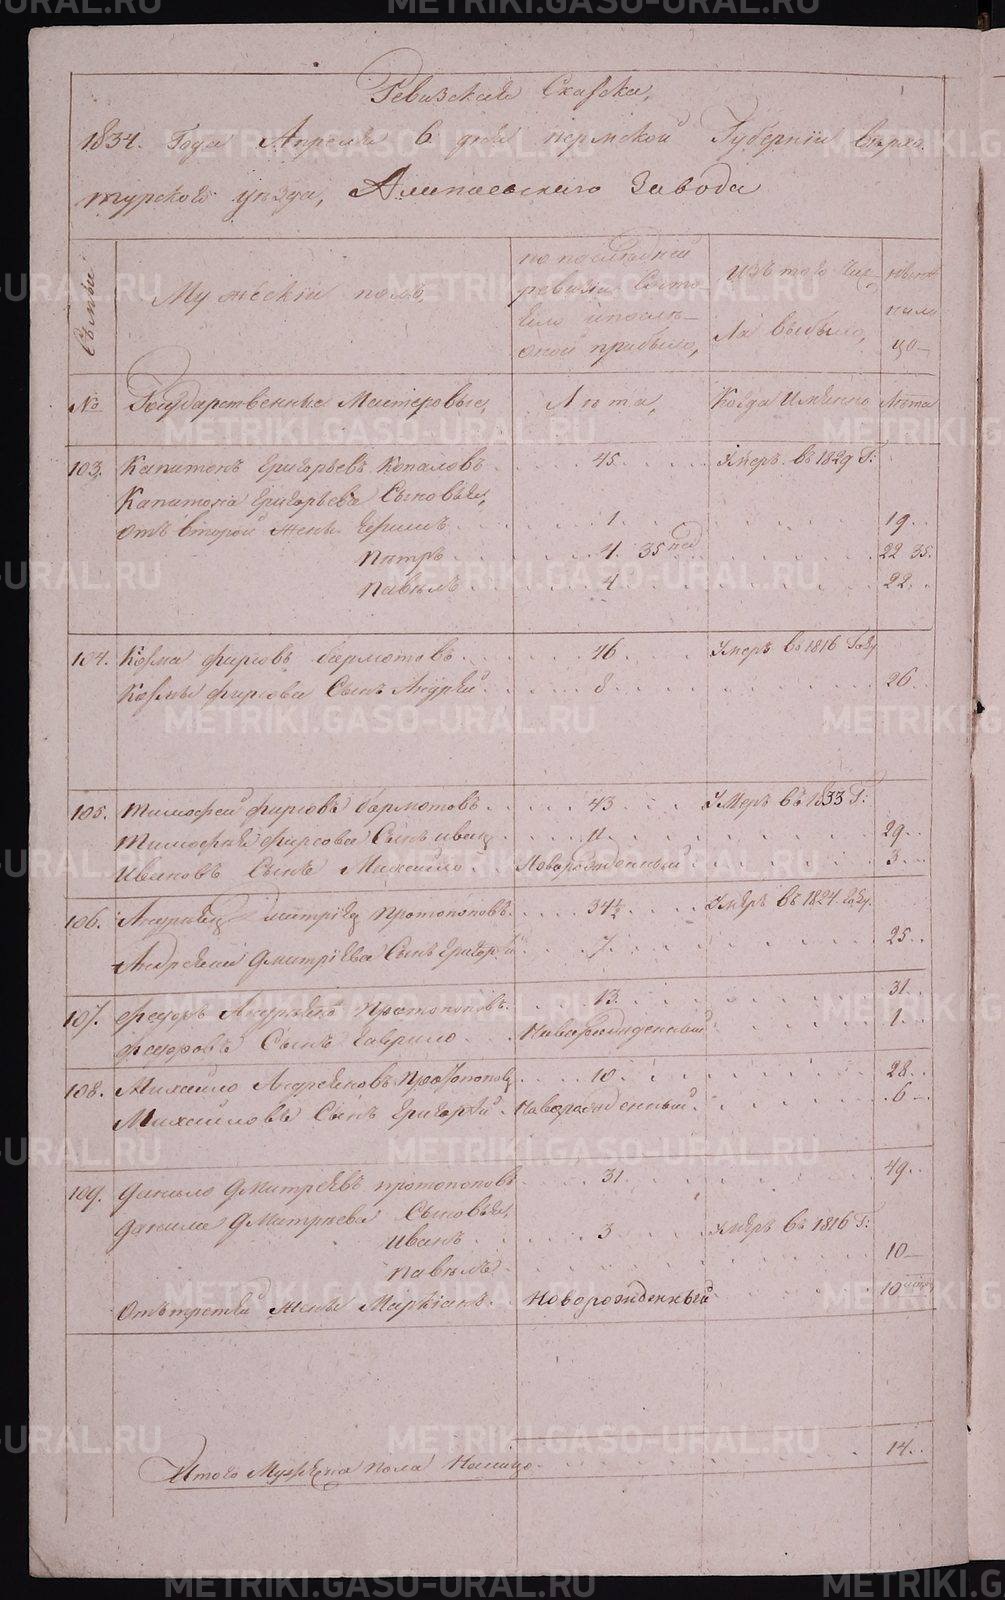 Ревизская Сказка,
1834. Года Апреля 6 дня пермской Губернии Верхо
турского уезда, Алапаевского Завода
Семьи
Мужеский полъ,
по последней ревизiи состо яло и после оной прибыло,
Изъ того чис ла выбыло,
ныне на лицо
№ Государственные Мастеровые, Лета, Когда Имянно Лета
103. Капитонъ Григорьевъ Копаловъ 45. Умеръ въ 1829 Г:
Капитона Григорьева Сыновья,
отъ второй жены Ефимъ 1. 19.
Петръ 4. 35 22 35.
Павелъ 4 22.
104. Козма фирсовъ бармотовъ 46 Умеръ въ 1816 Году
Козмы фирсова Сынъ Андрей 8 26.
105. Тимофей фирсовъ бармотовъ 43 Умеръ въ 1833 Г:
Тимофея фирсова Сынъ иванъ 11 29.
Ивановъ Сынъ Михайло Новорожденный 3
106. Андрей Дмитриевъ Протопоповъ 34½ Умеръ въ 1824 Году.
Андрея Дмитрiева Сынъ Григорiй 7. 25.
107. Федоръ Андреевъ Протопоповъ 13. 31.
Федоровъ Сынъ Гаврило Новорожденный 1.
108. Михайло Андреяновъ Протопоповъ 10. 28.
Михайловъ Сынъ Григорiй Новорожденный 6
109. Данило Дмитрiевъ протопоповъ 31. 49.
Данила Дмитриева Сыновья,
Иванъ 3 Умеръ въ 1816 Г:
Павелъ 10
Отъ третей жены Маркiанъ Новорожденный 10
Итого Мужеска пола Налицо 14.
METRIKI.GASO-URAL.RU